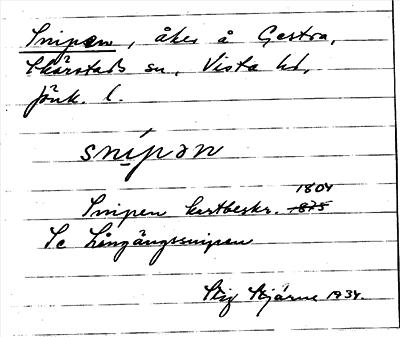 Snipen, åker å Gestra,
Skärstads sn, Vista hd,
Jönk. l.
snípən
1804
Snipen kartbeskr. 1875
Se Långängssnipen
Stig Stjärne 1934.